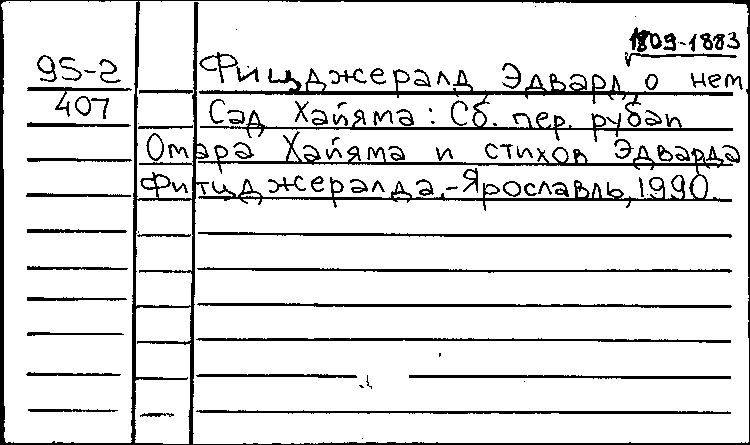 1809-1883
95-2 Фицджералд, Эдвард, о нем.
407 Сад Хайяма : Сб. пер. рубаи
Омара Хайяма и стихов Эдварда
Фитцджералда.-Ярославль,1990.